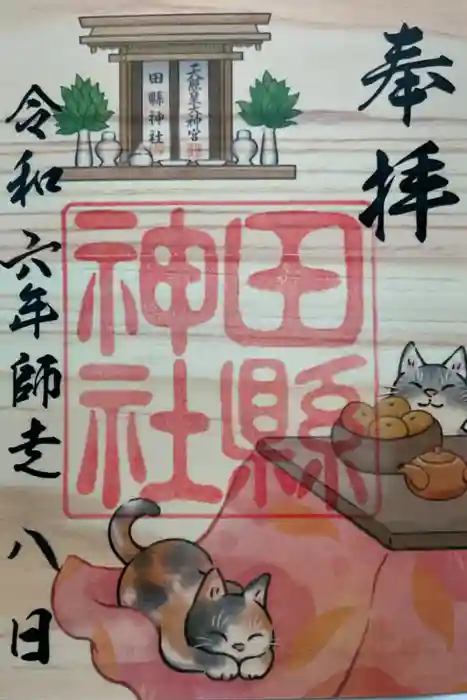 奉拝
田縣神社
天照皇大神宮
田縣神社
令和六年師走八日